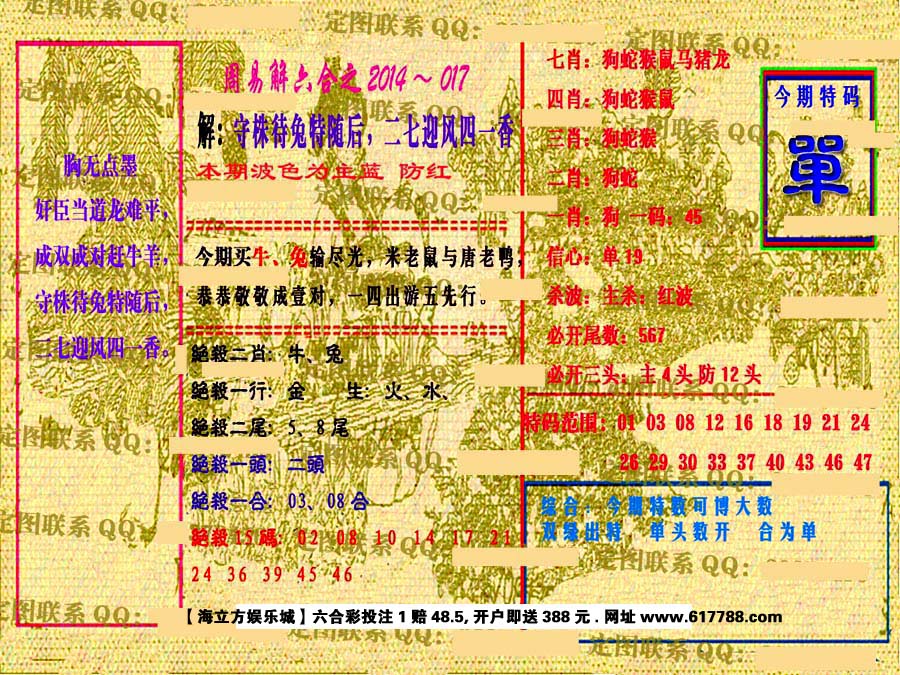 周易解六合之2014～017
解：守株待兔特随后，二七迎风四一香
本期波色为主蓝 防红
胸无点墨
奸臣当道龙难平，
成双成对赶牛羊，
守株待兔特随后，
二七迎风四一香。
今期买牛、兔输尽光，米老鼠与唐老鸭；
恭恭敬敬成壹对，一四出游五先行。
絕殺二肖：牛、兔
絕殺一行：金 生：火、水、
絕殺二尾：5、8尾
絕殺一頭：二頭
絕殺一合：03、08合
絕殺15碼：02 08 10 14 17 21
24 36 39 45 46
七肖：狗蛇猴鼠马猪龙
四肖：狗蛇猴鼠
三肖：狗蛇猴
二肖：狗蛇
一肖：狗 一码：45
信心：单19
杀波：主杀：红波
必开尾数：567
必开三头：主4头防12头
今期特码
單
特码范围：01 03 08 12 16 18 19 21 24
26 29 30 33 37 40 43 46 47
综合：今期特数可博大数
双绿出特，单头数开 合为单
【海立方娱乐城】六合彩投注1赔48.5,开户即送388元.网址www.617788.com
定图联系QQ：
定图联系QQ：
定图联系QQ：
定图联系QQ：
定图联系QQ：
定图联系QQ：
定图联系QQ：
定图联系QQ：